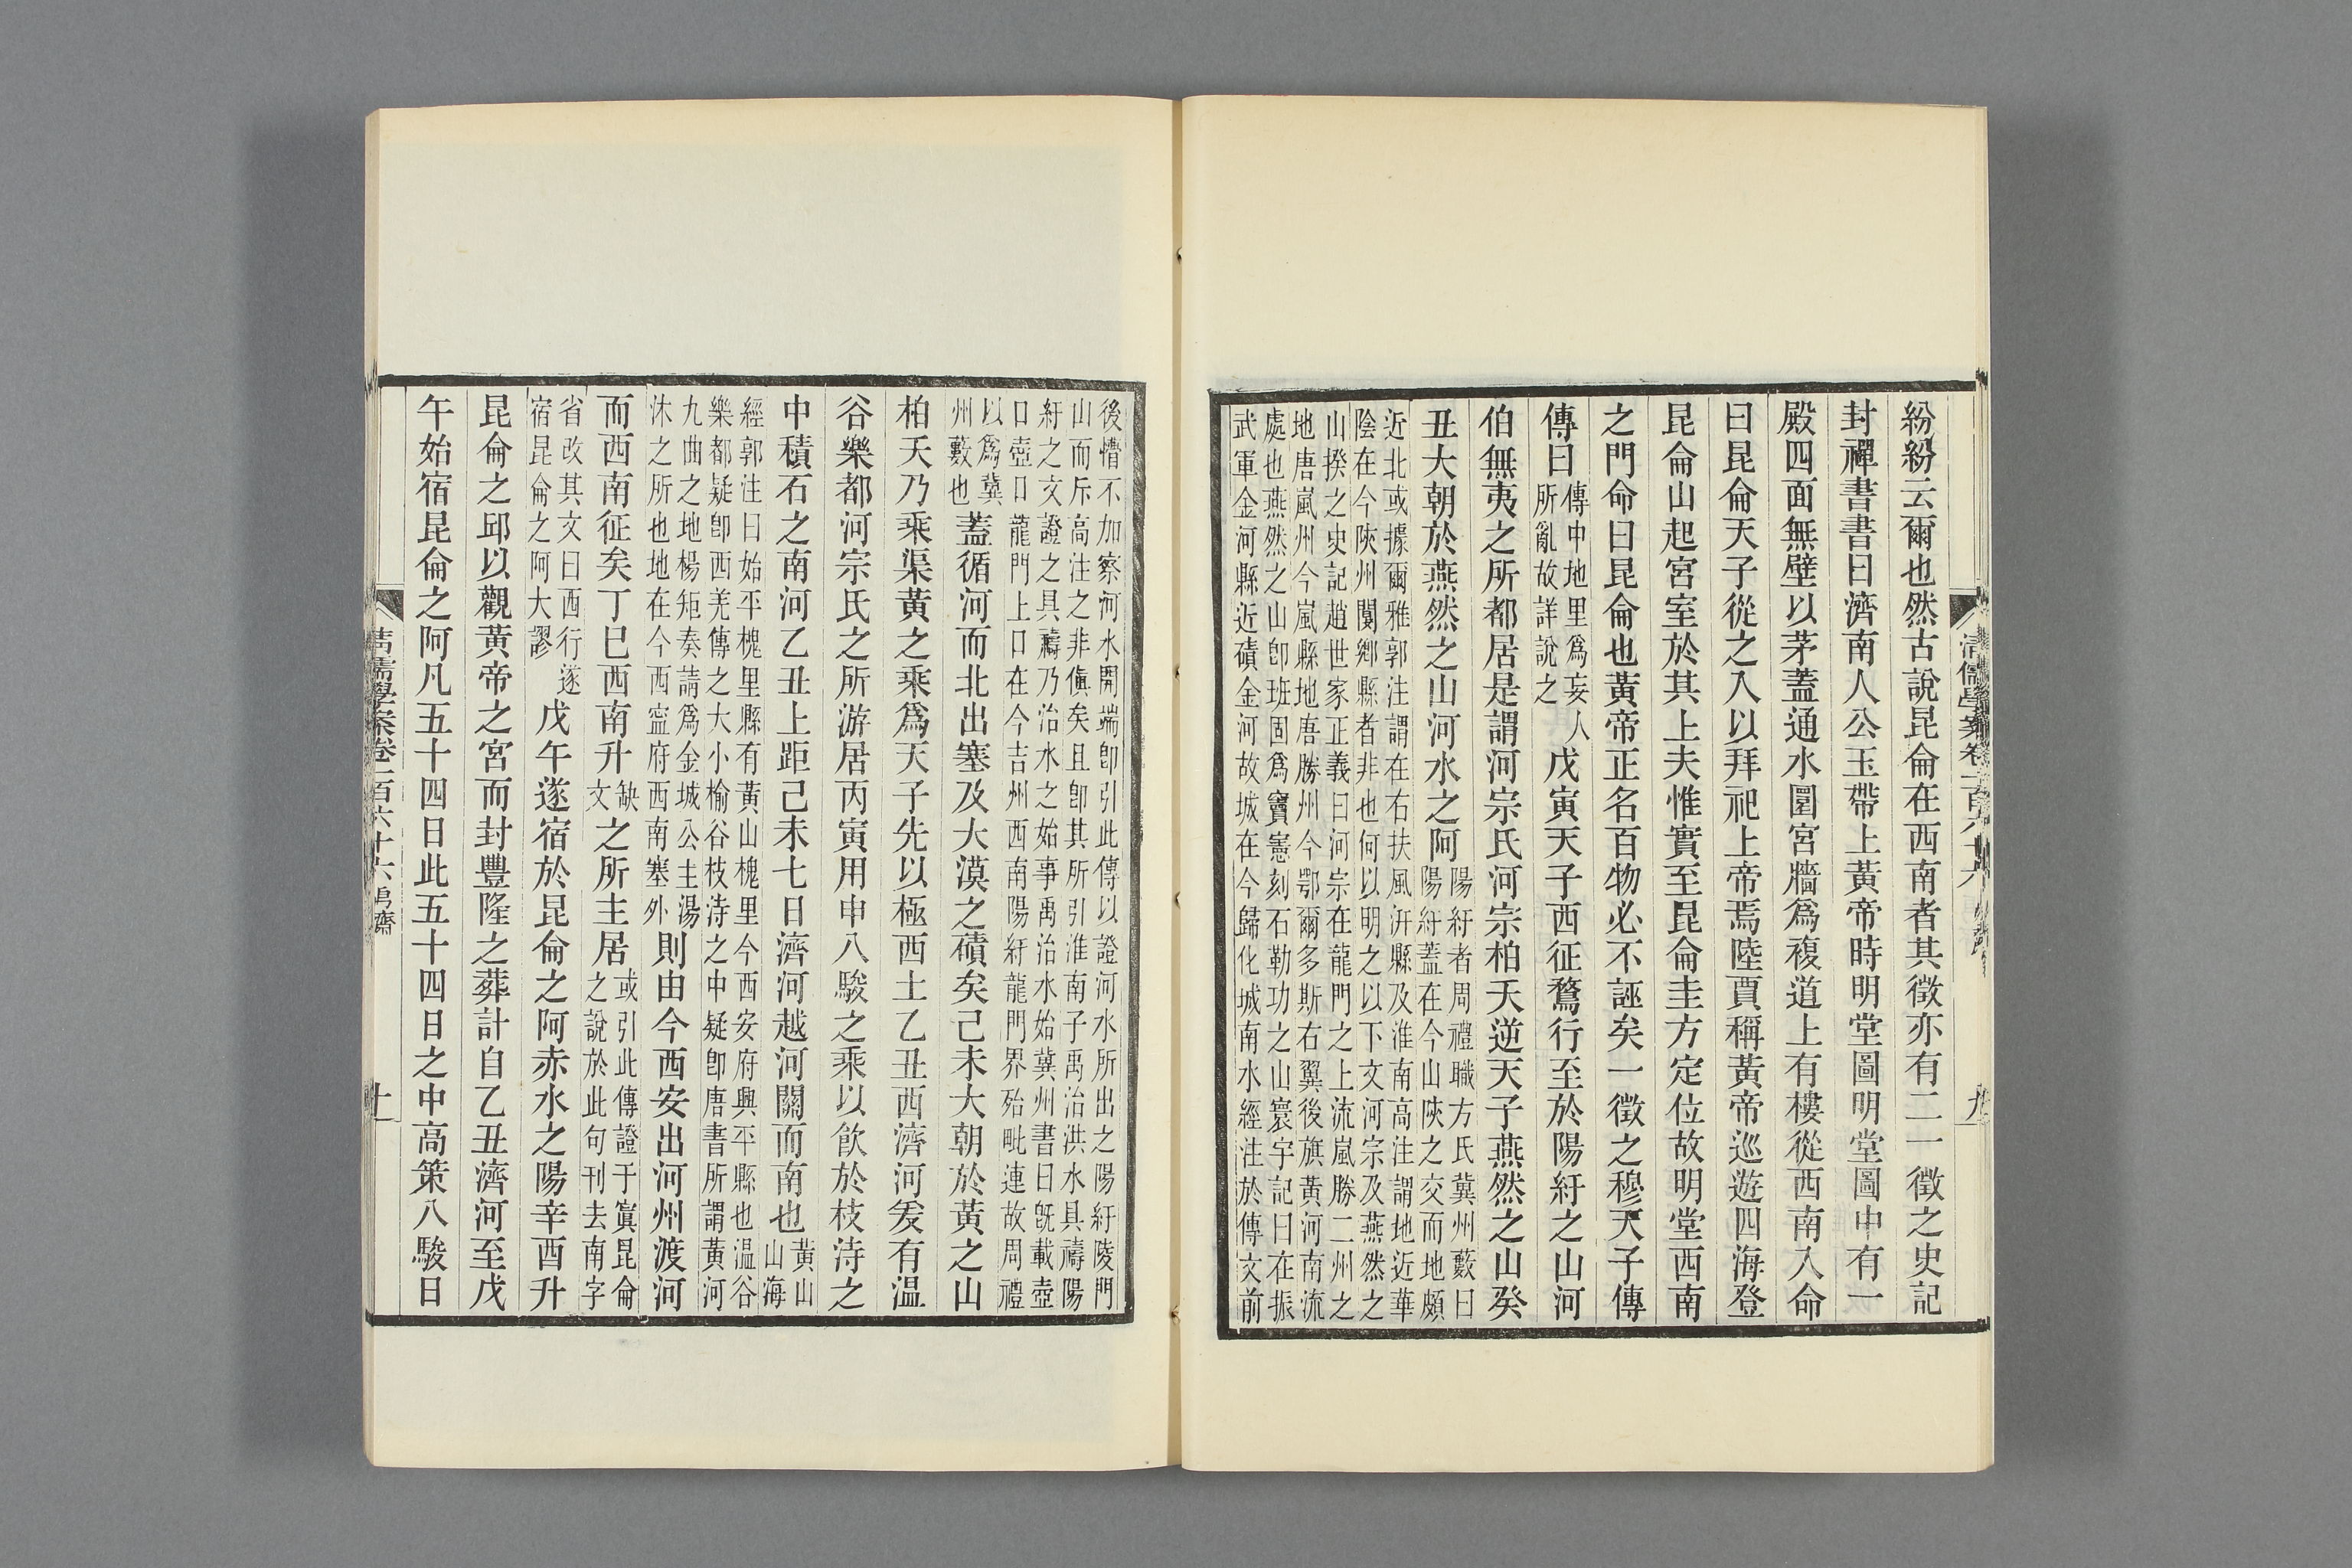 紛紛云爾也然古說昆侖在西南者其徵亦有二一徵之史記
封禪書書曰濟南人公玉帶上黃帝時明堂圖明堂圖中有一
殿四面無壁以茅蓋通水圜宮牆爲複道上有樓從西南入命
曰昆侖天子從之入以拜祀上帝焉陸賈稱黃帝巡遊四海登
昆侖山起宮室於其上夫惟實至昆侖圭方定位故明堂西南
之門命曰昆侖也黃帝正名百物必不誣矣一徵之穆天子傳
傳曰
傳中地里爲妄人
所亂故詳說之
戊寅天子西征鶩行至於陽紆之山河
伯無夷之所都居是謂河宗氏河宗柏夭逆天子燕然之山癸
丑大朝於燕然之山河水之阿
陽紆者周禮職方氏冀州藪曰
陽紆蓋在今山陝之交而地頗
近北或據爾雅郭注謂在右扶風汧縣及淮南高注謂地近華
陰在今陝州閿鄉縣者非也何以明之以下文河宗及燕然之
山揆之史記趙世家正義曰河宗在龍門之上流嵐勝二州之
地唐嵐州今嵐縣地唐勝州今鄂爾多斯右翼後旗黃河南流
處也燕然之山卽班固爲竇憲刻石勒功之山寰宇記曰在振
武軍金河縣近磧金河故城在今歸化城南水經注於傳文前
清儒學案卷一百六十六
後懵不加察河水開端卽引此傳以證河水所出之陽紆陵門
山而斥高注之非傎矣且卽其所引淮南子禹治洪水具禱陽
紆之文證之具禱乃治水之始事禹治水始冀州書曰旣載壺
口壺口龍門上口在今吉州西南陽紆龍門界殆毗連故周禮
以爲冀
州藪也
蓋循河而北出塞及大漠之磧矣己未大朝於黃之山
柏夭乃乘渠黃之乘爲天子先以極西土乙丑西濟河爰有溫
谷樂都河宗氏之所游居丙寅用申八駿之乘以飮於枝洔之
中積石之南河乙丑上距己未七日濟河越河關而南也
黃山
山海
經郭注曰始平槐里縣有黃山槐里今西安府興平縣也溫谷
樂都疑卽西羌傳之大小榆谷枝洔之中疑卽唐書所謂黃河
九曲之地楊矩奏請爲金城公主湯
沐之所也地在今西寍府西南塞外
則由今西安出河州渡河
而西南征矣丁巳西南升
缺
文
之所主居
或引此傳證于窴昆侖
之說於此句刊去南字
省改其文曰西行遂
宿昆侖之阿大謬
戊午遂宿於昆侖之阿赤水之陽辛酉升
昆侖之邱以觀黃帝之宮而封豐隆之葬計自乙丑濟河至戊
午始宿昆侖之阿凡五十四日此五十四日之中高策八駿日
清儒學案卷一百六十六
十一